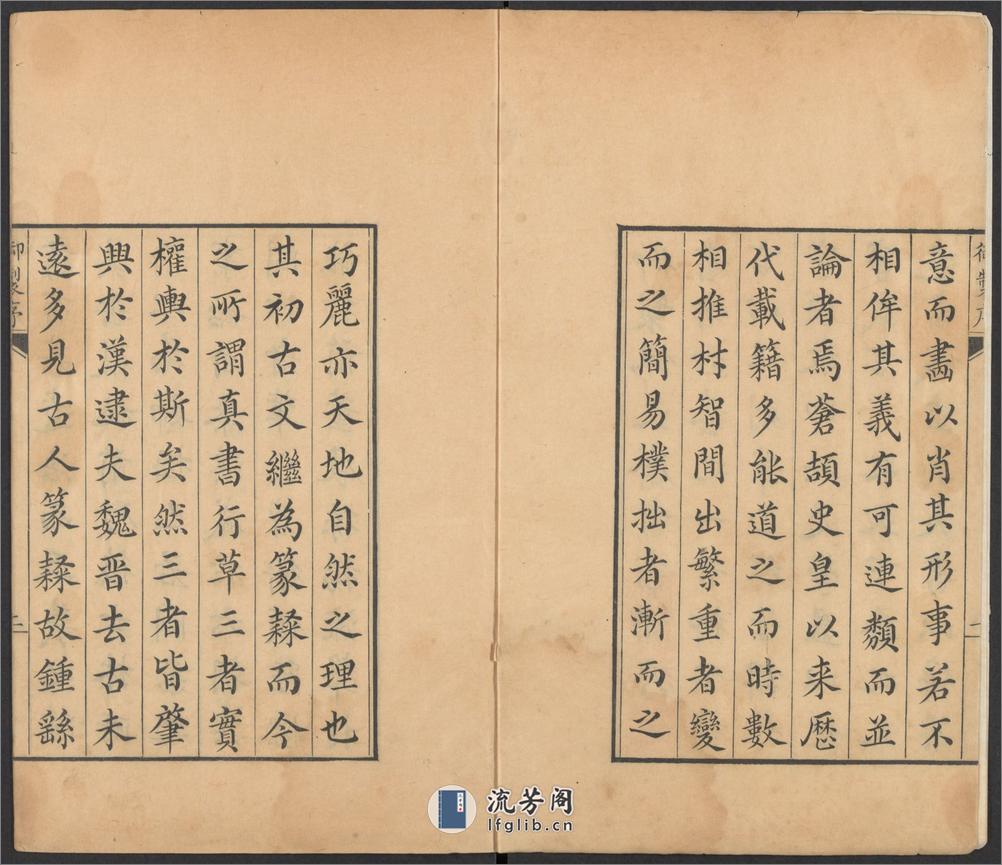 御製序
二
意而畵以肖其形事若不
相侔其義有可連類而並
論者焉蒼頡史皇以来歷
代載籍多能道之而時數
相推材智間出繁重者變
而之簡易樸拙者漸而之
巧麗亦天地自然之理也
其初古文繼為篆隸而今
之所謂真書行草三者實
權輿於斯矣然三者皆肇
興於漢逮夫魏晋去古未
遠多見古人篆隸故鍾繇
御製序
三
流芳阁
lfglib.cn